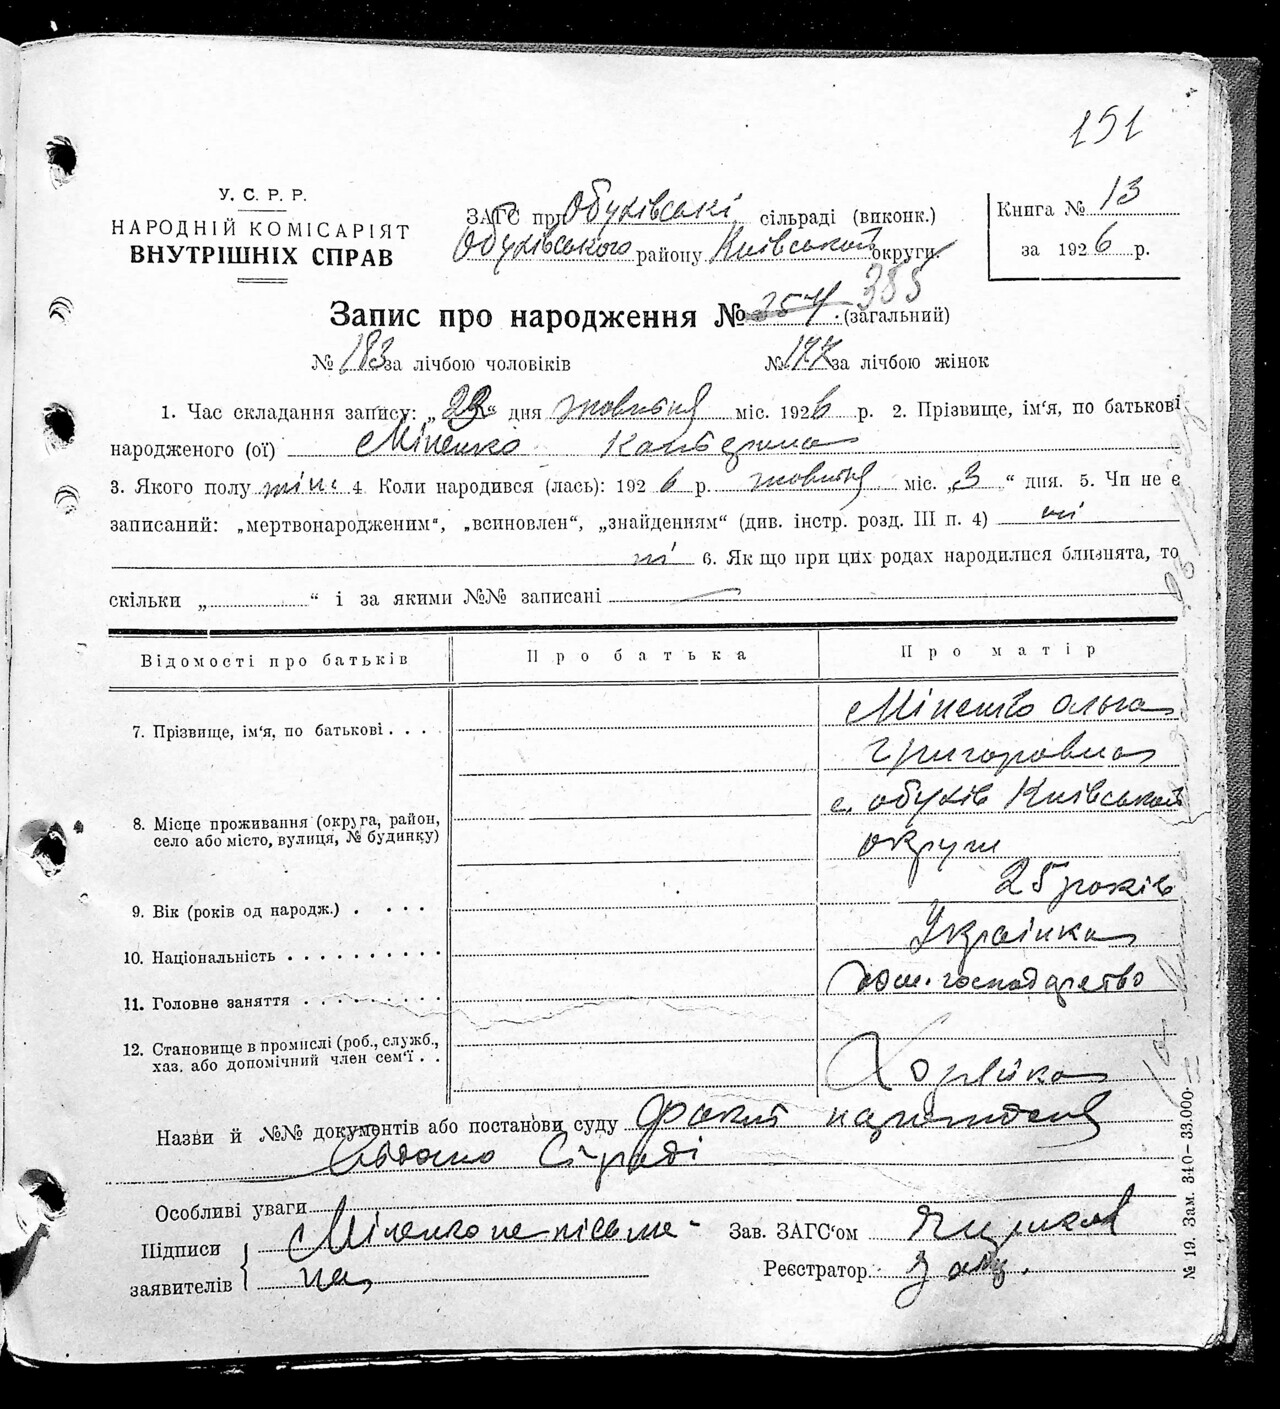 151
У. С. Р. Р.
НАРОДНІЙ КОМІСАРІЯТ
ВНУТРІШНІХ СПРАВ
ЗАГС при Обухівські сільраді (виконк.)
Обухівського району Київської округи
Книга № 13
за 1926 р.
Запис про народження № 354 385 (загальний)
№ 183 за лічбою чоловіків № 177 за лічбою жінок
1. Час складання запису: „23“ дня жовтня міс. 1926 р. 2. Прізвище, ім'я, по батькові
народженого (ої) Міненко Катерина
3. Якого полу жін. 4 Коли народився (лась): 1926 р. жовтня міс. „3“ дня. 5. Чи не є
записаний: „мертвонародженим“, „всиновлен“, „знайденням“ (див. інстр. розд. III п. 4) ні
ні 6. Як що при цих родах народилися близнята, то
скільки „ “ і за якими №№ записані
Відомості про батьків Про батька Про матір
7. Прізвище, ім'я, по батькові . . . . Міненко Ольга
Григоровна
8. Місце проживання (округа, район, село або місто, вулиця, № будинку) с. Обухів Київської
округи
9. Вік (років од народж.) . . . . 25 років
10. Національність . . . . . . . . . . Українка
11. Головне заняття . . . . . . . . . дом. господарство
12. Становище в промислі (роб., служб.,
хаз. або допомічний член сем'ї . .
Назви й №№ документів або постанови суду Факт народження
відомо С/раді
Особливі уваги
Підписи
заявителів
Міненко не пісьме-
на
Зав. ЗАГС'ом
Реєстратор
№ 19. Зам. 340–33.000.